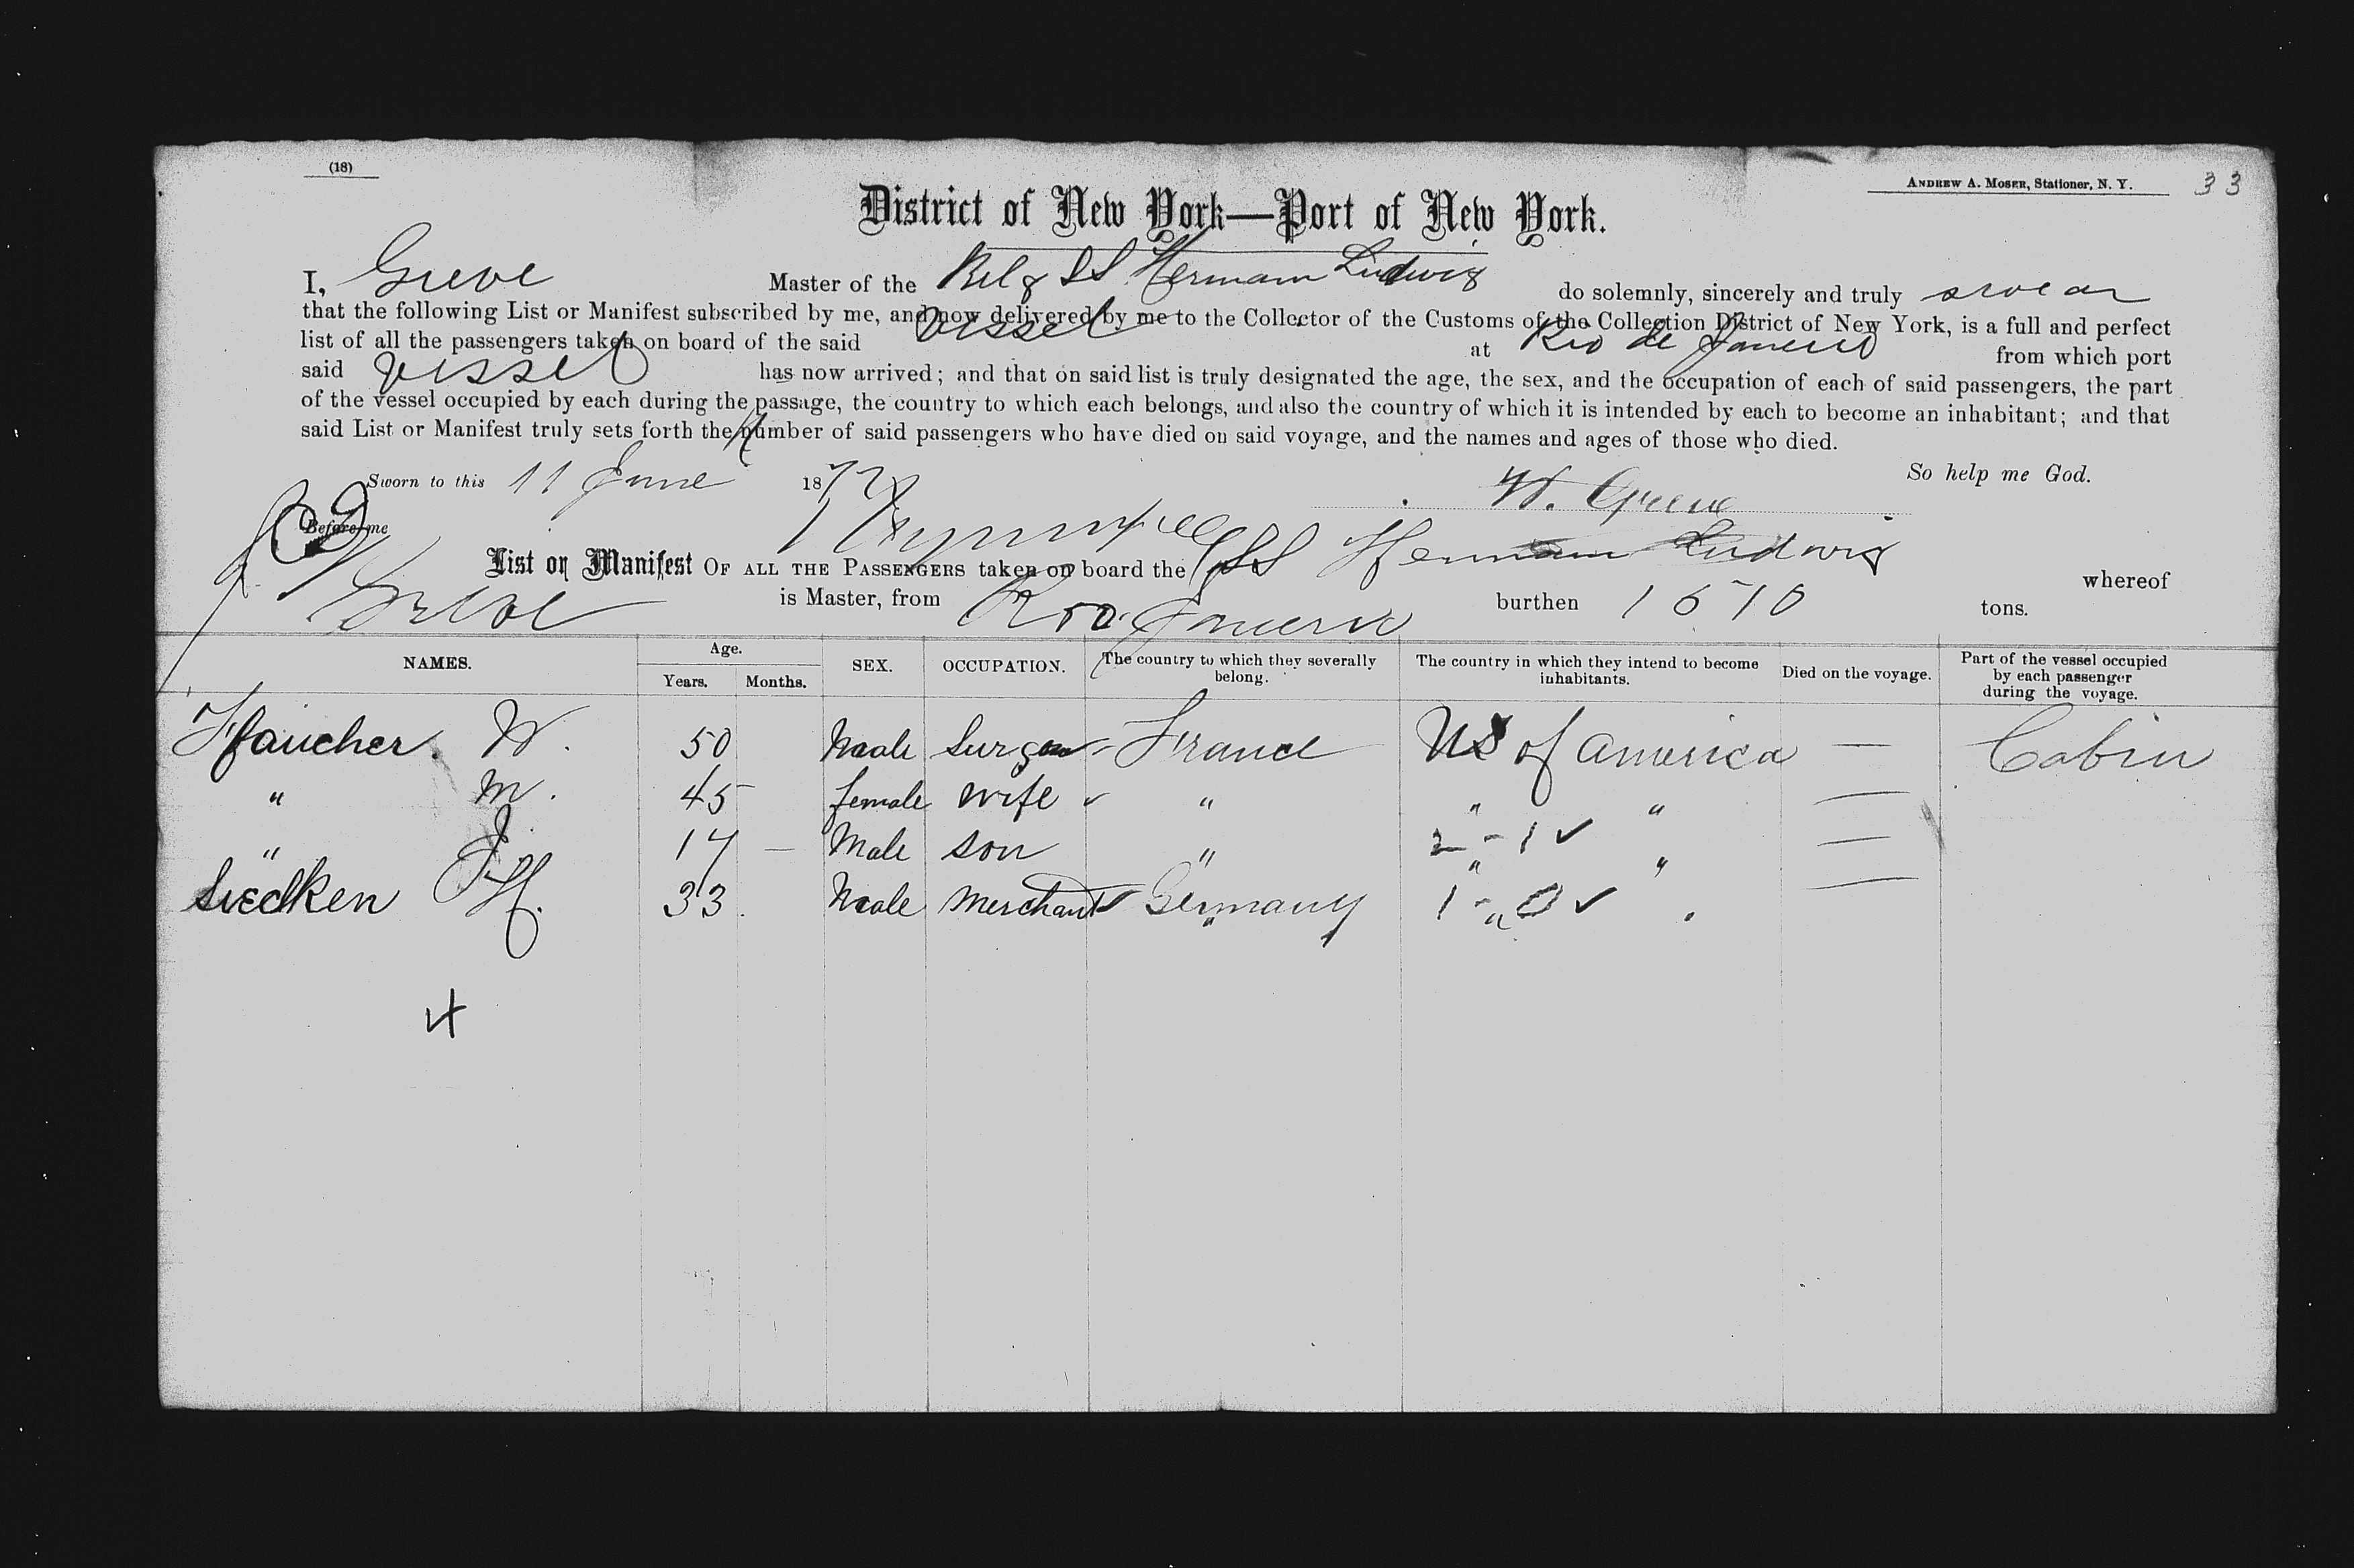 (18)
ANDREW A. MOSER, Stationer, N. Y. 33
District of New York—Port of New York.
I, Greve Master of the Belg SS Hermann Ludwig do solemnly, sincerely and truly swear
that the following List or Manifest subscribed by me, and now delivered by me to the Collector of the Customs of the Collection District of New York, is a full and perfect
list of all the passengers taken on board of the said Vessel at Rio de Janeiro from which port
said Vessel has now arrived; and that on said list is truly designated the age, the sex, and the occupation of each of said passengers, the part
of the vessel occupied by each during the passage, the country to which each belongs, and also the country of which it is intended by each to become an inhabitant; and that
said List or Manifest truly sets forth the number of said passengers who have died on said voyage, and the names and ages of those who died.
So help me God.
Sworn to this 11 June 1872 W. Greve
Before me
List or Manifest OF ALL THE PASSENGERS taken on board the SS Hermann Ludwig whereof
Greve is Master, from Rio Janeiro burthen 1670 tons.
NAMES. Age. Years. Months. SEX. OCCUPATION. The country to which they severally belong. The country in which they intend to become inhabitants. Died on the voyage. Part of the vessel occupied by each passenger during the voyage.
Ffaucher. W. 50 Male Surgeon France US of America — Cabin
" M. 45 female wife " " " —
" J. 17 — Male son " " " —
2 - 1 ✓
Siedken H. 33. Male Merchant Germany " —
1 - 0 ✓
4